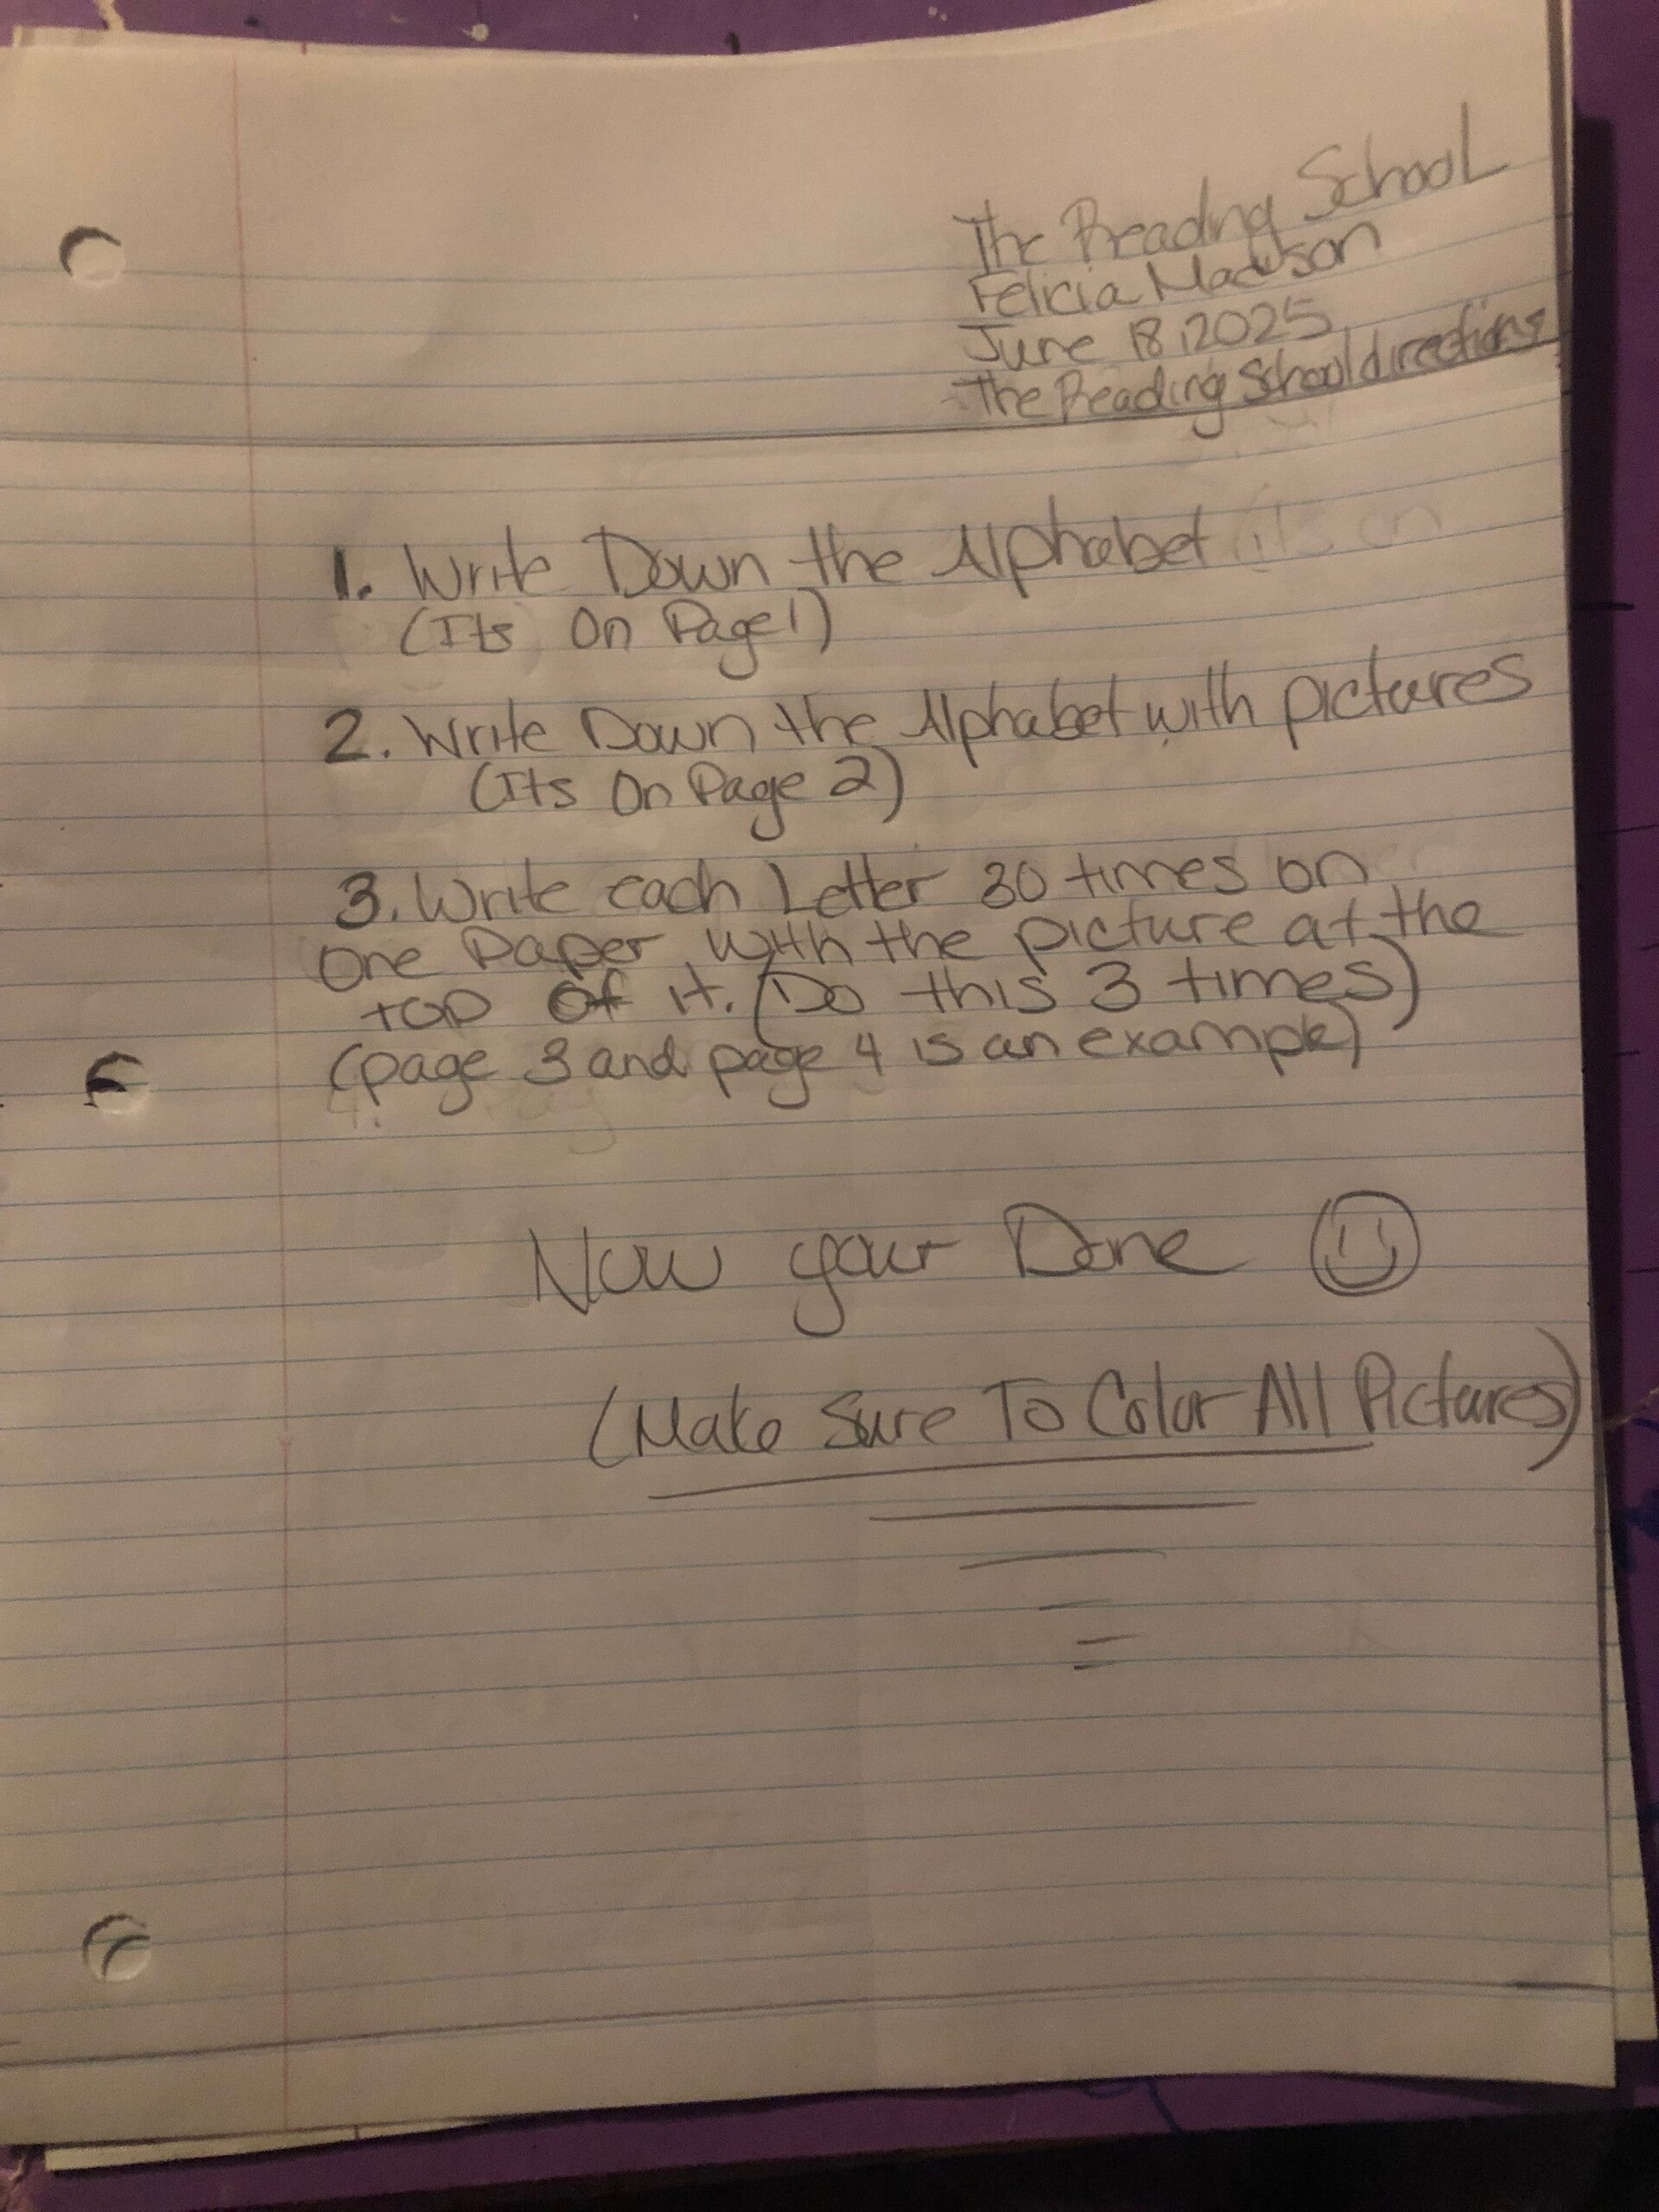 The Reading School
Felicia Madison
June 18, 2025
The Reading School directions
1. Write Down the Alphabet (its on
(Its On Page 1)
2. Write Down the Alphabet with pictures
(Its On Page 2)
3. Write each Letter 30 times on
one Paper with the picture at the
top of it. (Do this 3 times)
(page 3 and page 4 is an example)
Now your Done
(Make Sure To Color All Pictures)